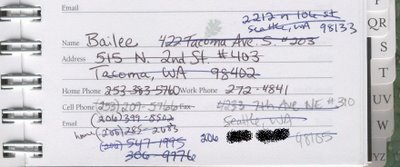 Email
2212 n 106 st
Seattle, WA 98133
Name Bailee 422 Tacoma Ave. S. #203
Address 515 N. 2nd St. #403
Tacoma, WA 98402
Home Phone 253-383-5760 Work Phone 272-4841
Cell Phone (253) 209-5766 Fax 4233 7th Ave NE #310
Email (206) 399-8502 Seattle, WA
home (206) 285-2683 206 98105
(206) 547-1995
206 9776
QR
S
T
UV
W
X
YZ